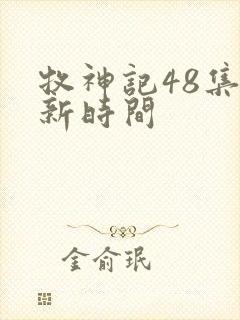 牧神記48集
新時間
金俞珉